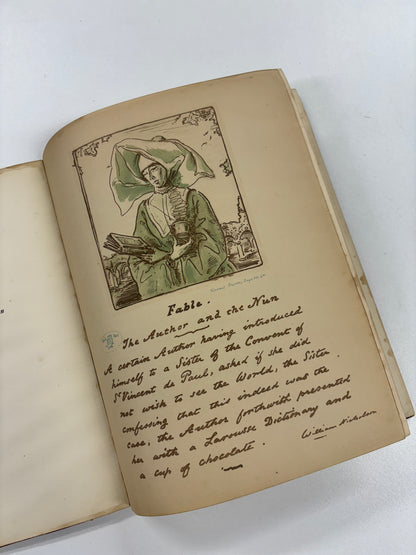 Fable.
The Author and the Nun
A certain Author having introduced
himself to a Sister of the Convent of
St Vincent de Paul, asked if she did
not wish to see the World, the Sister
confessing that this indeed was the
case, the Author forthwith presented
her with a Larousse Dictionary and
a cup of chocolate.
William Nicholson